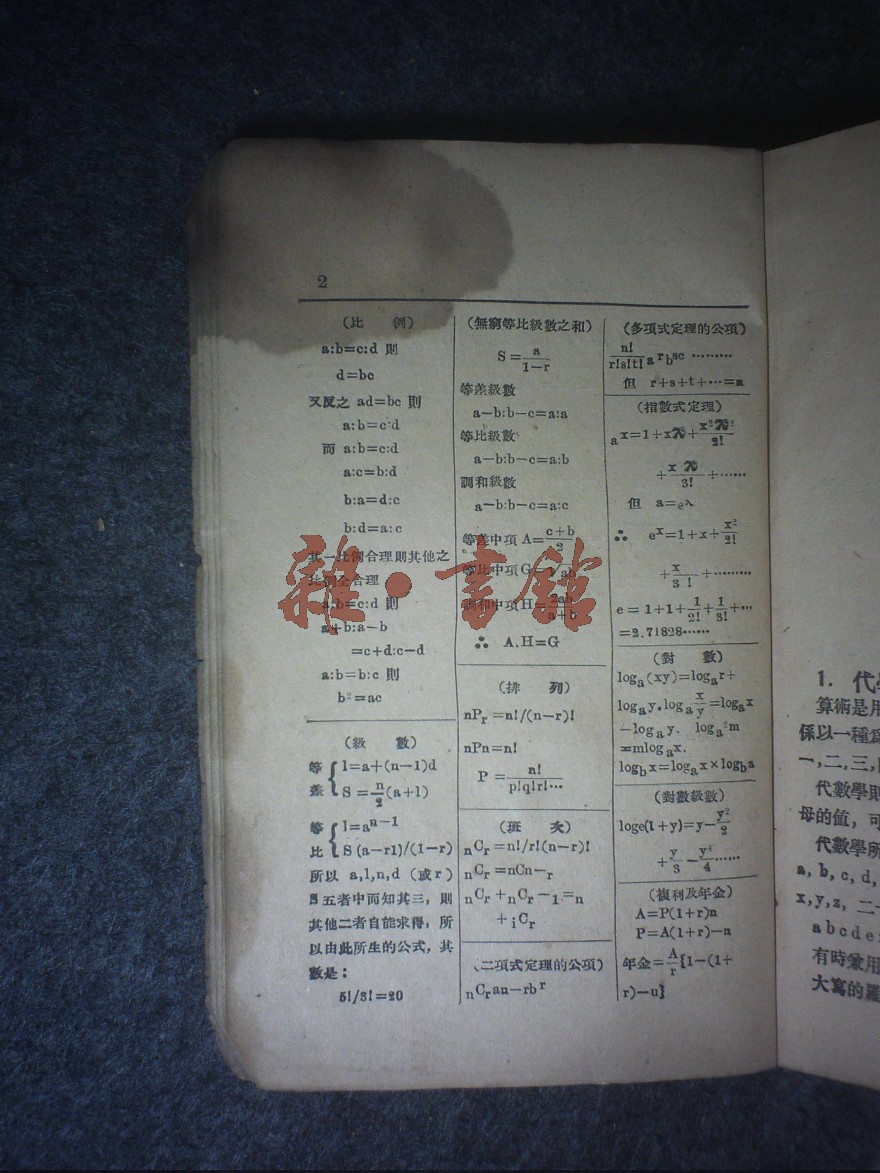 2
(比 例)
a:b=c:d 則
d=bc
又反之 ad=bc 則
a:b=c:d
而 a:b=c:d
a:c=b:d
b:a=d:c
b:d=a:c
其一比例合理則其他之
比例全合理
a:b=c:d 則
a+b:a−b
=c+d:c−d
a:b=b:c 則
b²=ac
(級 數)
等差{l=a+(n−1)d
S=n/2(a+l)
等比{l=aⁿ⁻¹
S(a−rl)/(1−r)
所以 a,l,n,d (或r)
S五者中而知其三，則
其他二者自能求得，所
以由此所生的公式，其
數是：
5!/3!=20
(無窮等比級數之和)
S=a/1−r
等差級數
a−b:b−c=a:a
等比級數
a−b:b−c=a:b
調和級數
a−b:b−c=a:c
等差中項 A=c+b/2
等比中項 G=√ab
調和中項 H=2ab/a+b
∴ A.H=G
(排 列)
nPr=n!/(n−r)!
nPn=n!
P=n!/p!q!r!…
(班 次)
nCr=n!/r!(n−r)!
nCr=nCn−r
nCr+nCr−1=n
+iCr
(二項式定理的公項)
nCran−rbʳ
(多項式定理的公項)
n!/r!s!t! aʳbsc ………
但 r+s+t+…=n
(指數式定理)
(對 數)
loga(xy)=logar+
logay.loga x/y=logax
−logay. loga²m
=mlogax.
logbx=logax×logba
(對數級數)
loge(1+y)=y−y²/2
+y/3−y⁴/4……
(複利及年金)
A=P(1+r)n
P=A(1+r)−n
年金=A/r{1−(1+
r)−u}
但 a=eλ
∴ eˣ=1+x+x²/2!
+x/3!+………
e=1+1+1/2!+1/3!+…
=2.71828……
雜·書館
1. 代
算術是用
係以一種爲
一,二,三,
代數學則
母的值，可
代數學所
a, b, c, d,
x,y,z, 二
a b c d e
有時兼用
大寫的羅